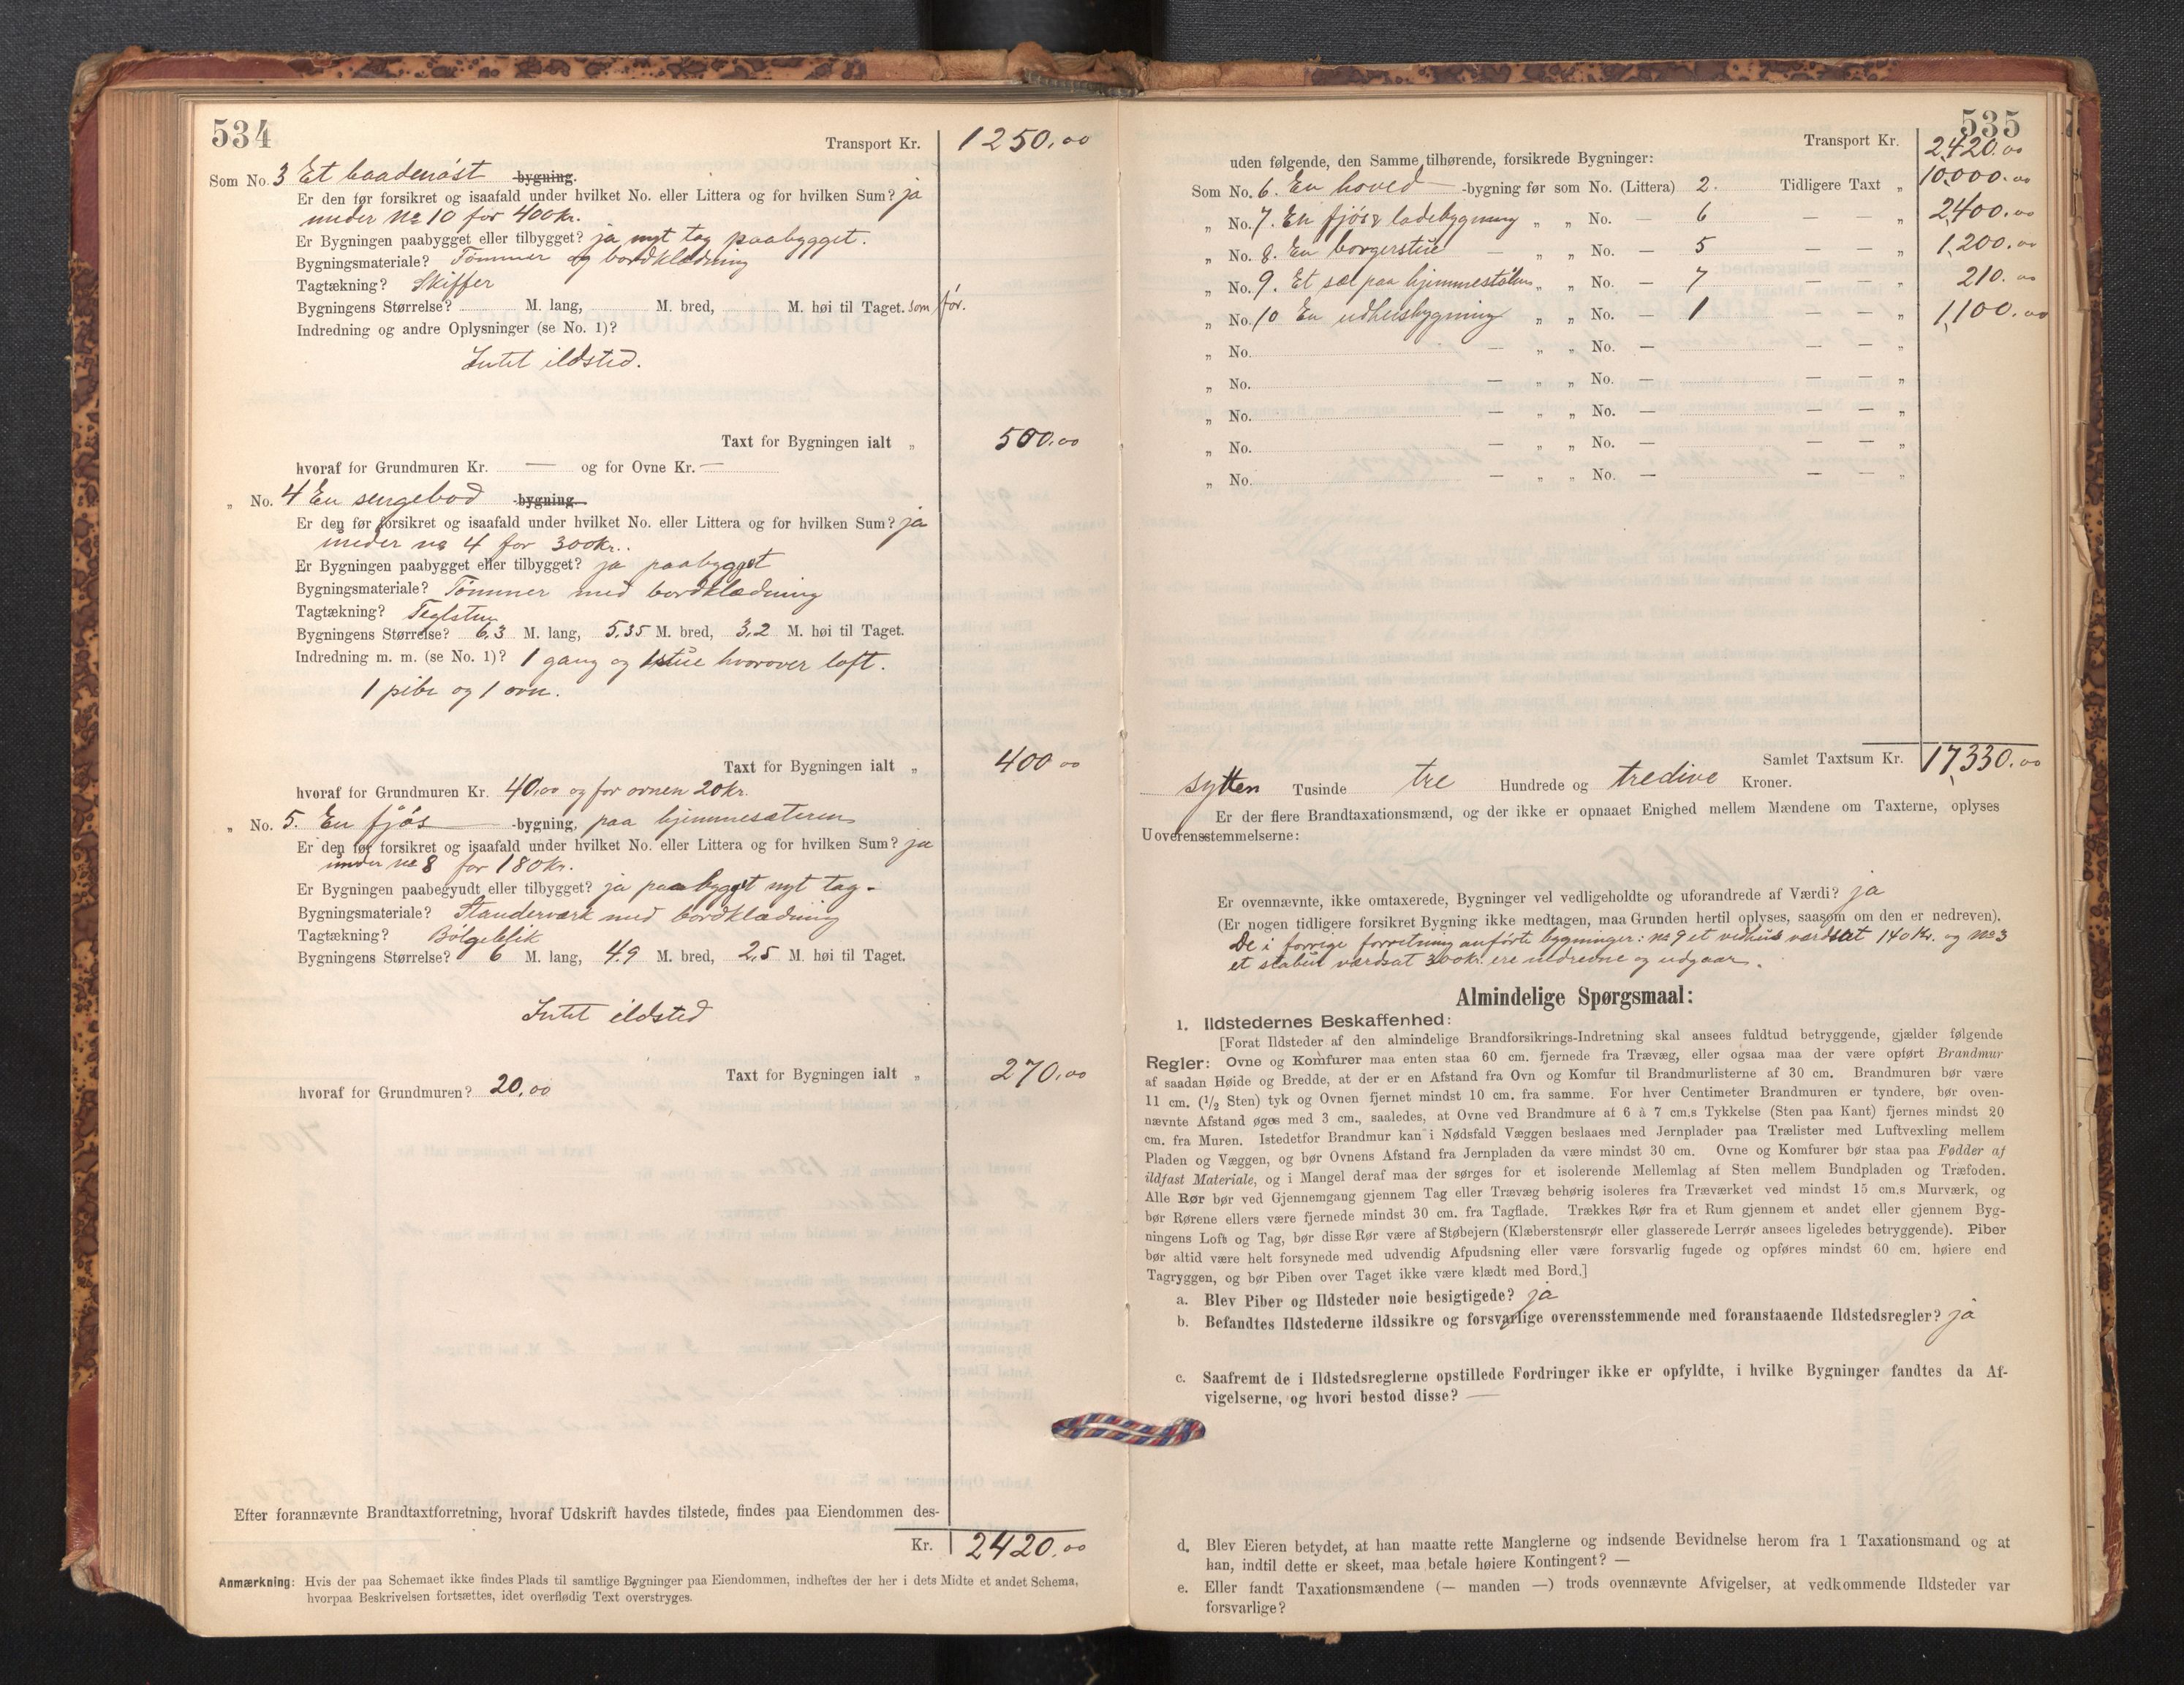 534
Transport Kr. 1250.00
Som No. 3 Et baadenöst -bygning.
Er den før forsikret og isaafald under hvilket No. eller Littera og for hvilken Sum? ja
under No 10 for 400 kr.
Er Bygningen paabygget eller tilbygget? ja nyt tag paabygget.
Bygningsmateriale? Tömmer og bordklædning
Tagtækning? Skiffer
Bygningens Størrelse? M. lang, M. bred, M. høi til Taget. som för.
Indredning og andre Oplysninger (se No. 1)?
Intet ildsted.
Taxt for Bygningen ialt „ 500.00
hvoraf for Grundmuren Kr. — og for Ovne Kr. —
„ No. 4 En sengebod -bygning
Er den før forsikret og isaafald under hvilket No. eller Littera og for hvilken Sum? ja
under no 4 for 300kr..
Er Bygningen paabygget eller tilbygget? ja paabygget
Bygningsmateriale? Tömmer med bordklædning
Tagtækning? Teglsten
Bygningens Størrelse? 6,3 M. lang, 5,35 M. bred, 3,2 M. høi til Taget.
Indredning m. m. (se No. 1)? 1 gang og 1 stue hvorover loft.
1 pibe og 1 ovn.
Taxt for Bygningen ialt „ 400 00
hvoraf for Grundmuren Kr. 40,00 og for ovnen 20 kr.
„ No. 5. En fjös -bygning, paa hjemmesæteren
Er den før forsikret og isaafald under hvilket No. eller Littera og for hvilken Sum? ja
under No 8 for 180kr.
Er Bygningen paabegyndt eller tilbygget? ja paabygget nyt tag -
Bygningsmateriale? Standerværk med bordklædning
Tagtækning? Bölgeblik
Bygningens Størrelse? 6 M. lang, 4,9 M. bred, 2,5 M. høi til Taget.
Intet ildsted
Taxt for Bygningen ialt „ 270,00
hvoraf for Grundmuren? 20,00
Efter forannævnte Brandtaxtforretning, hvoraf Udskrift havdes tilstede, findes paa Eiendommen des-
Kr. 2420.00
Anmærkning: Hvis der paa Schemaet ikke findes Plads til samtlige Bygninger paa Eiendommen, indheftes der her i dets Midte et andet Schema,
hvorpaa Beskrivelsen fortsættes, idet overflødig Text overstryges.
535
Transport Kr. 2,420.00
uden følgende, den Samme tilhørende, forsikrede Bygninger:
Som No. 6. En hoved -bygning før som No. (Littera) 2. Tidligere Taxt „ 10,000.00
„ No. 7. En fjös & ladebygning „ „ No. — 6 — — „ 2,400.00
„ No. 8. En borgerstue — „ „ No. — 5 — — „ 1,200.00
„ No. 9. Et sel paa hjemmestölen „ „ No. — 7 — — „ 210.00
„ No. 10 En udhusbygning „ „ No. — 1 — — „ 1,100.00
„ No. — „ „ No. — — — „
„ No. — „ „ No. — — — „
„ No. — „ „ No. — — — „
„ No. — „ „ No. — — — „
„ No. — „ „ No. — — — „
Samlet Taxtsum Kr. 17,330.00
sytten Tusinde tre Hundrede og tredive Kroner.
Er der flere Brandtaxationsmænd, og der ikke er opnaaet Enighed mellem Mændene om Taxterne, oplyses
Uoverensstemmelserne:
Er ovennævnte, ikke omtaxerede, Bygninger vel vedligeholdte og uforandrede af Værdi? ja
(Er nogen tidligere forsikret Bygning ikke medtagen, maa Grunden hertil oplyses, saasom om den er nedreven).
De i forrige forretning anförte bygninger: No 9 et vedhus værdsat 140 Kr. og No 3
et stabur værdsat 300kr. ere nedrevne og udgaar.
Almindelige Spørgsmaal:
1. Ildstedernes Beskaffenhed:
[Forat Ildsteder af den almindelige Brandforsikrings-Indretning skal ansees fuldtud betryggende, gjælder følgende
Regler: Ovne og Komfurer maa enten staa 60 cm. fjernede fra Trævæg, eller ogsaa maa der være opført Brandmur
af saadan Høide og Bredde, at der er en Afstand fra Ovn og Komfur til Brandmurlisterne af 30 cm. Brandmuren bør være
11 cm. (1/2 Sten) tyk og Ovnen fjernet mindst 10 cm. fra samme. For hver Centimeter Brandmuren er tyndere, bør oven-
nævnte Afstand øges med 3 cm., saaledes, at Ovne ved Brandmure af 6 à 7 cm.s Tykkelse (Sten paa Kant) fjernes mindst 20
cm. fra Muren. Istedetfor Brandmur kan i Nødsfald Væggen beslaaes med Jernplader paa Trælister med Luftvexling mellem
Pladen og Væggen, og bør Ovnens Afstand fra Jernpladen da være mindst 30 cm. Ovne og Komfurer bør staa paa Fødder af
ildfast Materiale, og i Mangel deraf maa der sørges for et isolerende Mellemlag af Sten mellem Bundpladen og Træfoden.
Alle Rør bør ved Gjennemgang gjennem Tag eller Trævæg behørig isoleres fra Træværket ved mindst 15 cm.s Murværk, og
bør Rørene ellers være fjernede mindst 30 cm. fra Tagflade. Trækkes Rør fra et Rum gjennem et andet eller gjennem Byg-
ningens Loft og Tag, bør disse Rør være af Støbejern (Klæberstensrør eller glasserede Lerrør ansees ligeledes betryggende). Piber
bør altid være helt forsynede med udvendig Afpudsning eller være forsvarlig fugede og opføres mindst 60 cm. høiere end
Tagryggen, og bør Piben over Taget ikke være klædt med Bord.]
a. Blev Piber og Ildsteder nøie besigtigede? ja
b. Befandtes Ildstederne ildssikre og forsvarlige overensstemmende med foranstaaende Ildstedsregler? ja
c. Saafremt de i Ildstedsreglerne opstillede Fordringer ikke er opfyldte, i hvilke Bygninger fandtes da Af-
vigelserne, og hvori bestod disse? —
d. Blev Eieren betydet, at han maatte rette Manglerne og indsende Bevidnelse herom fra 1 Taxationsmand og at
han, indtil dette er skeet, maa betale høiere Kontingent? —
e. Eller fandt Taxationsmændene (— manden —) trods ovennævnte Afvigelser, at vedkommende Ildsteder var
forsvarlige?